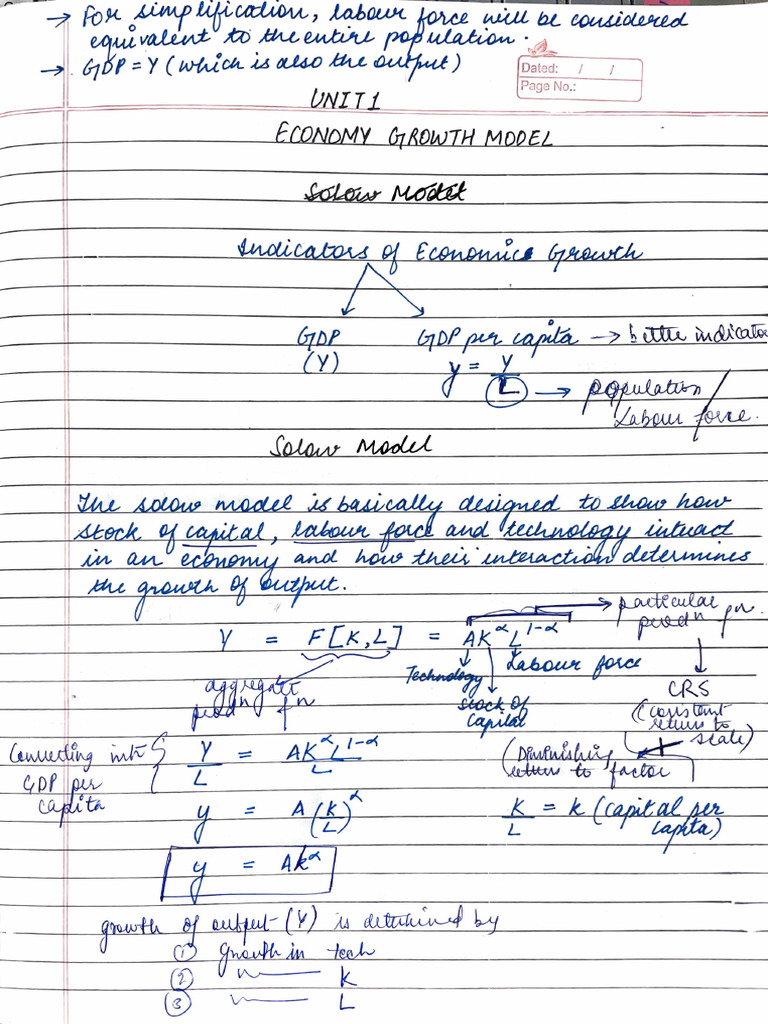 → For simplification, labour force will be considered
equivalent to the entire population.
→ GDP = Y (which is also the output)
Dated: / /
Page No.:
UNIT 1
ECONOMY GROWTH MODEL
Solow Model
Indicators of Economic Growth
GDP
(Y)
GDP per capita → better indicator
y = Y/L → population/
Labour force.
Solow Model
The solow model is basically designed to show how
stock of capital, labour force and technology interact
in an economy and how their interaction determines
the growth of output.
→ particular
prodⁿ fn.
Y = F[K,L] = AK^α L^1-α
Technology
Labour force
stock of
capital
aggregate
prodⁿ fn
CRS
(constant
return to
scale)
(Diminishing
return to factor
Converting into
GDP per
capita
Y/L = AK^α L^1-α/L
y = A(K/L)^α
K/L = k (capital per
capita)
y = Ak^α
growth of output (Y) is determined by
① Growth in tech
② 〃 K
③ 〃 L